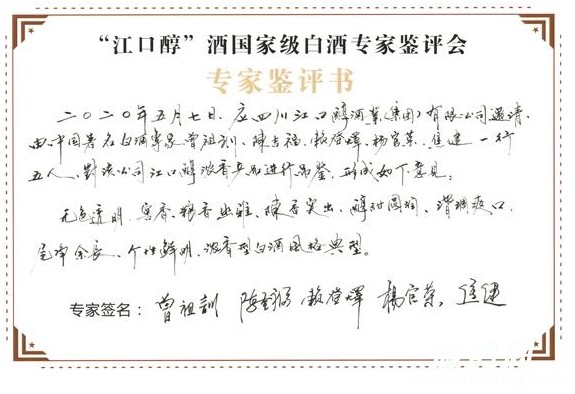 “江口醇”酒国家级白酒专家鉴评会
专家鉴评书
二〇二〇年五月七日，应四川江口醇酒业(集团)有限公司邀请，
由中国著名白酒专家曾祖训、陈吉福、赖登燡、杨官荣、佳建一行
五人，对该公司江口醇浓香产品进行品鉴，形成如下意见：
无色透明、窖香、粮香幽雅、陈香突出、醇甜圆润、谐调爽口、
尾净余长、个性鲜明、浓香型白酒风格典型。
专家签名：曾祖訓 赖登燡 楊官荣